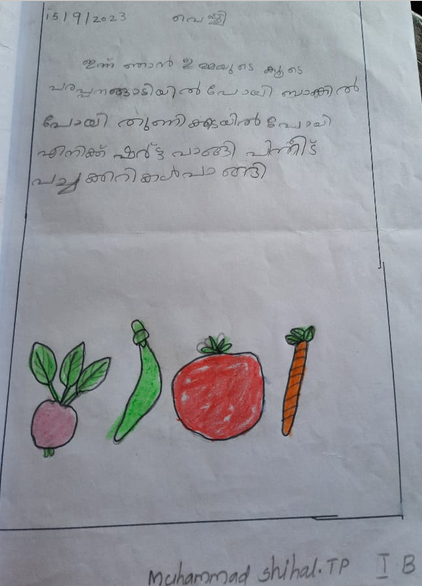 15/9/2023 വെള്ളി
ഇന്ന് ഞാൻ ഉമ്മയുടെ കൂടെ
പരപ്പനങ്ങാടിയിൽ പോയി ബാങ്കിൽ
പോയി തുണിക്കടയിൽ പോയി
എനിക്ക് ഷർട്ട് വാങ്ങി പിന്നീട്
പച്ചക്കറികൾ വാങ്ങി
Muhammad shihal. TP I B